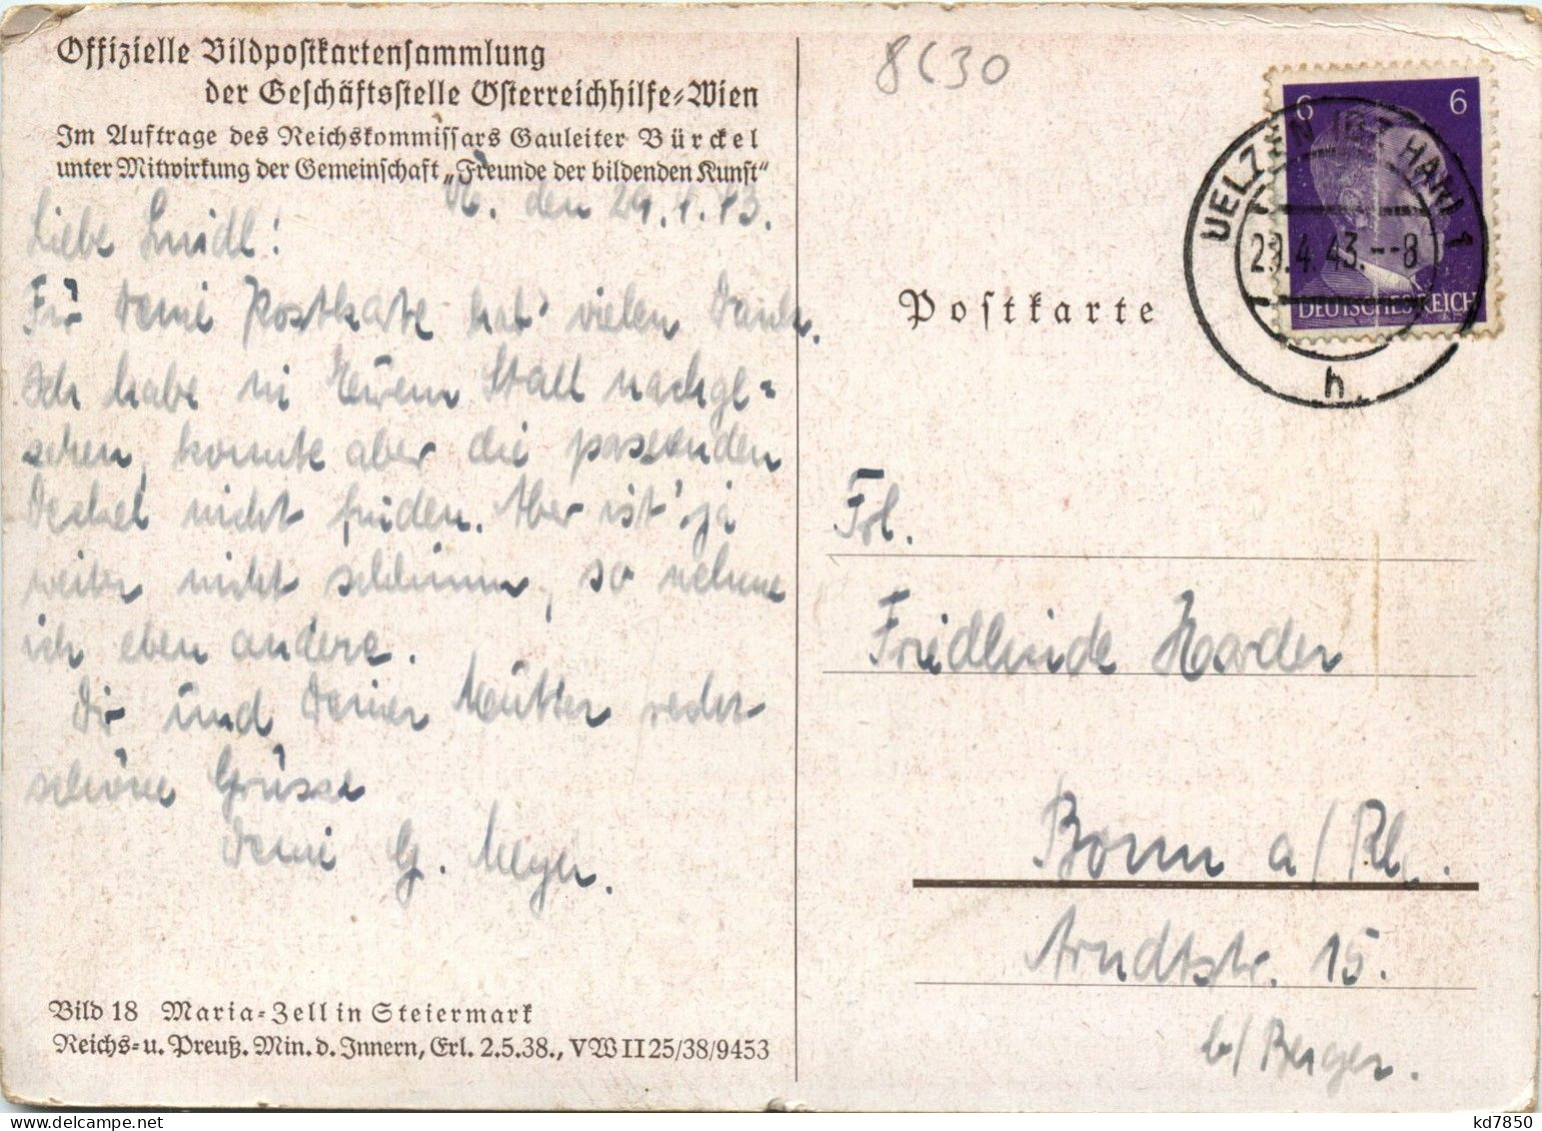 Offizielle Bildpostkartensammlung
der Geschäftsstelle Österreichhilfe-Wien
Im Auftrage des Reichskommissars Gauleiter Bürckel
unter Mitwirkung der Gemeinschaft „Freunde der bildenden Kunst“
den 29.4.43.
Liebe
Für Deine Postkarte hab' vielen Dank.
Ich habe in Eurem Stall nachge-
sehen, konnte aber die passenden
Deckel nicht finden. Aber ist ja
weiter nicht schlimm, so nehme
ich eben andere.
Dir und Deiner Mutter recht
schöne Grüsse
Deine G. Meyer.
Bild 18 Maria-Zell in Steiermark
Reichs- u. Preuß. Min. d. Innern, Erl. 2.5.38., VW II 25/38/9453
8630
6 6
DEUTSCHES REICH
UELZEN (BZ. HAN) 1
29.4.43.--8
h
Postkarte
Frl.
Friedlinde Harder
Bonn a/Rh.
Arndtstr. 15.
b/ Berger.
kd7850